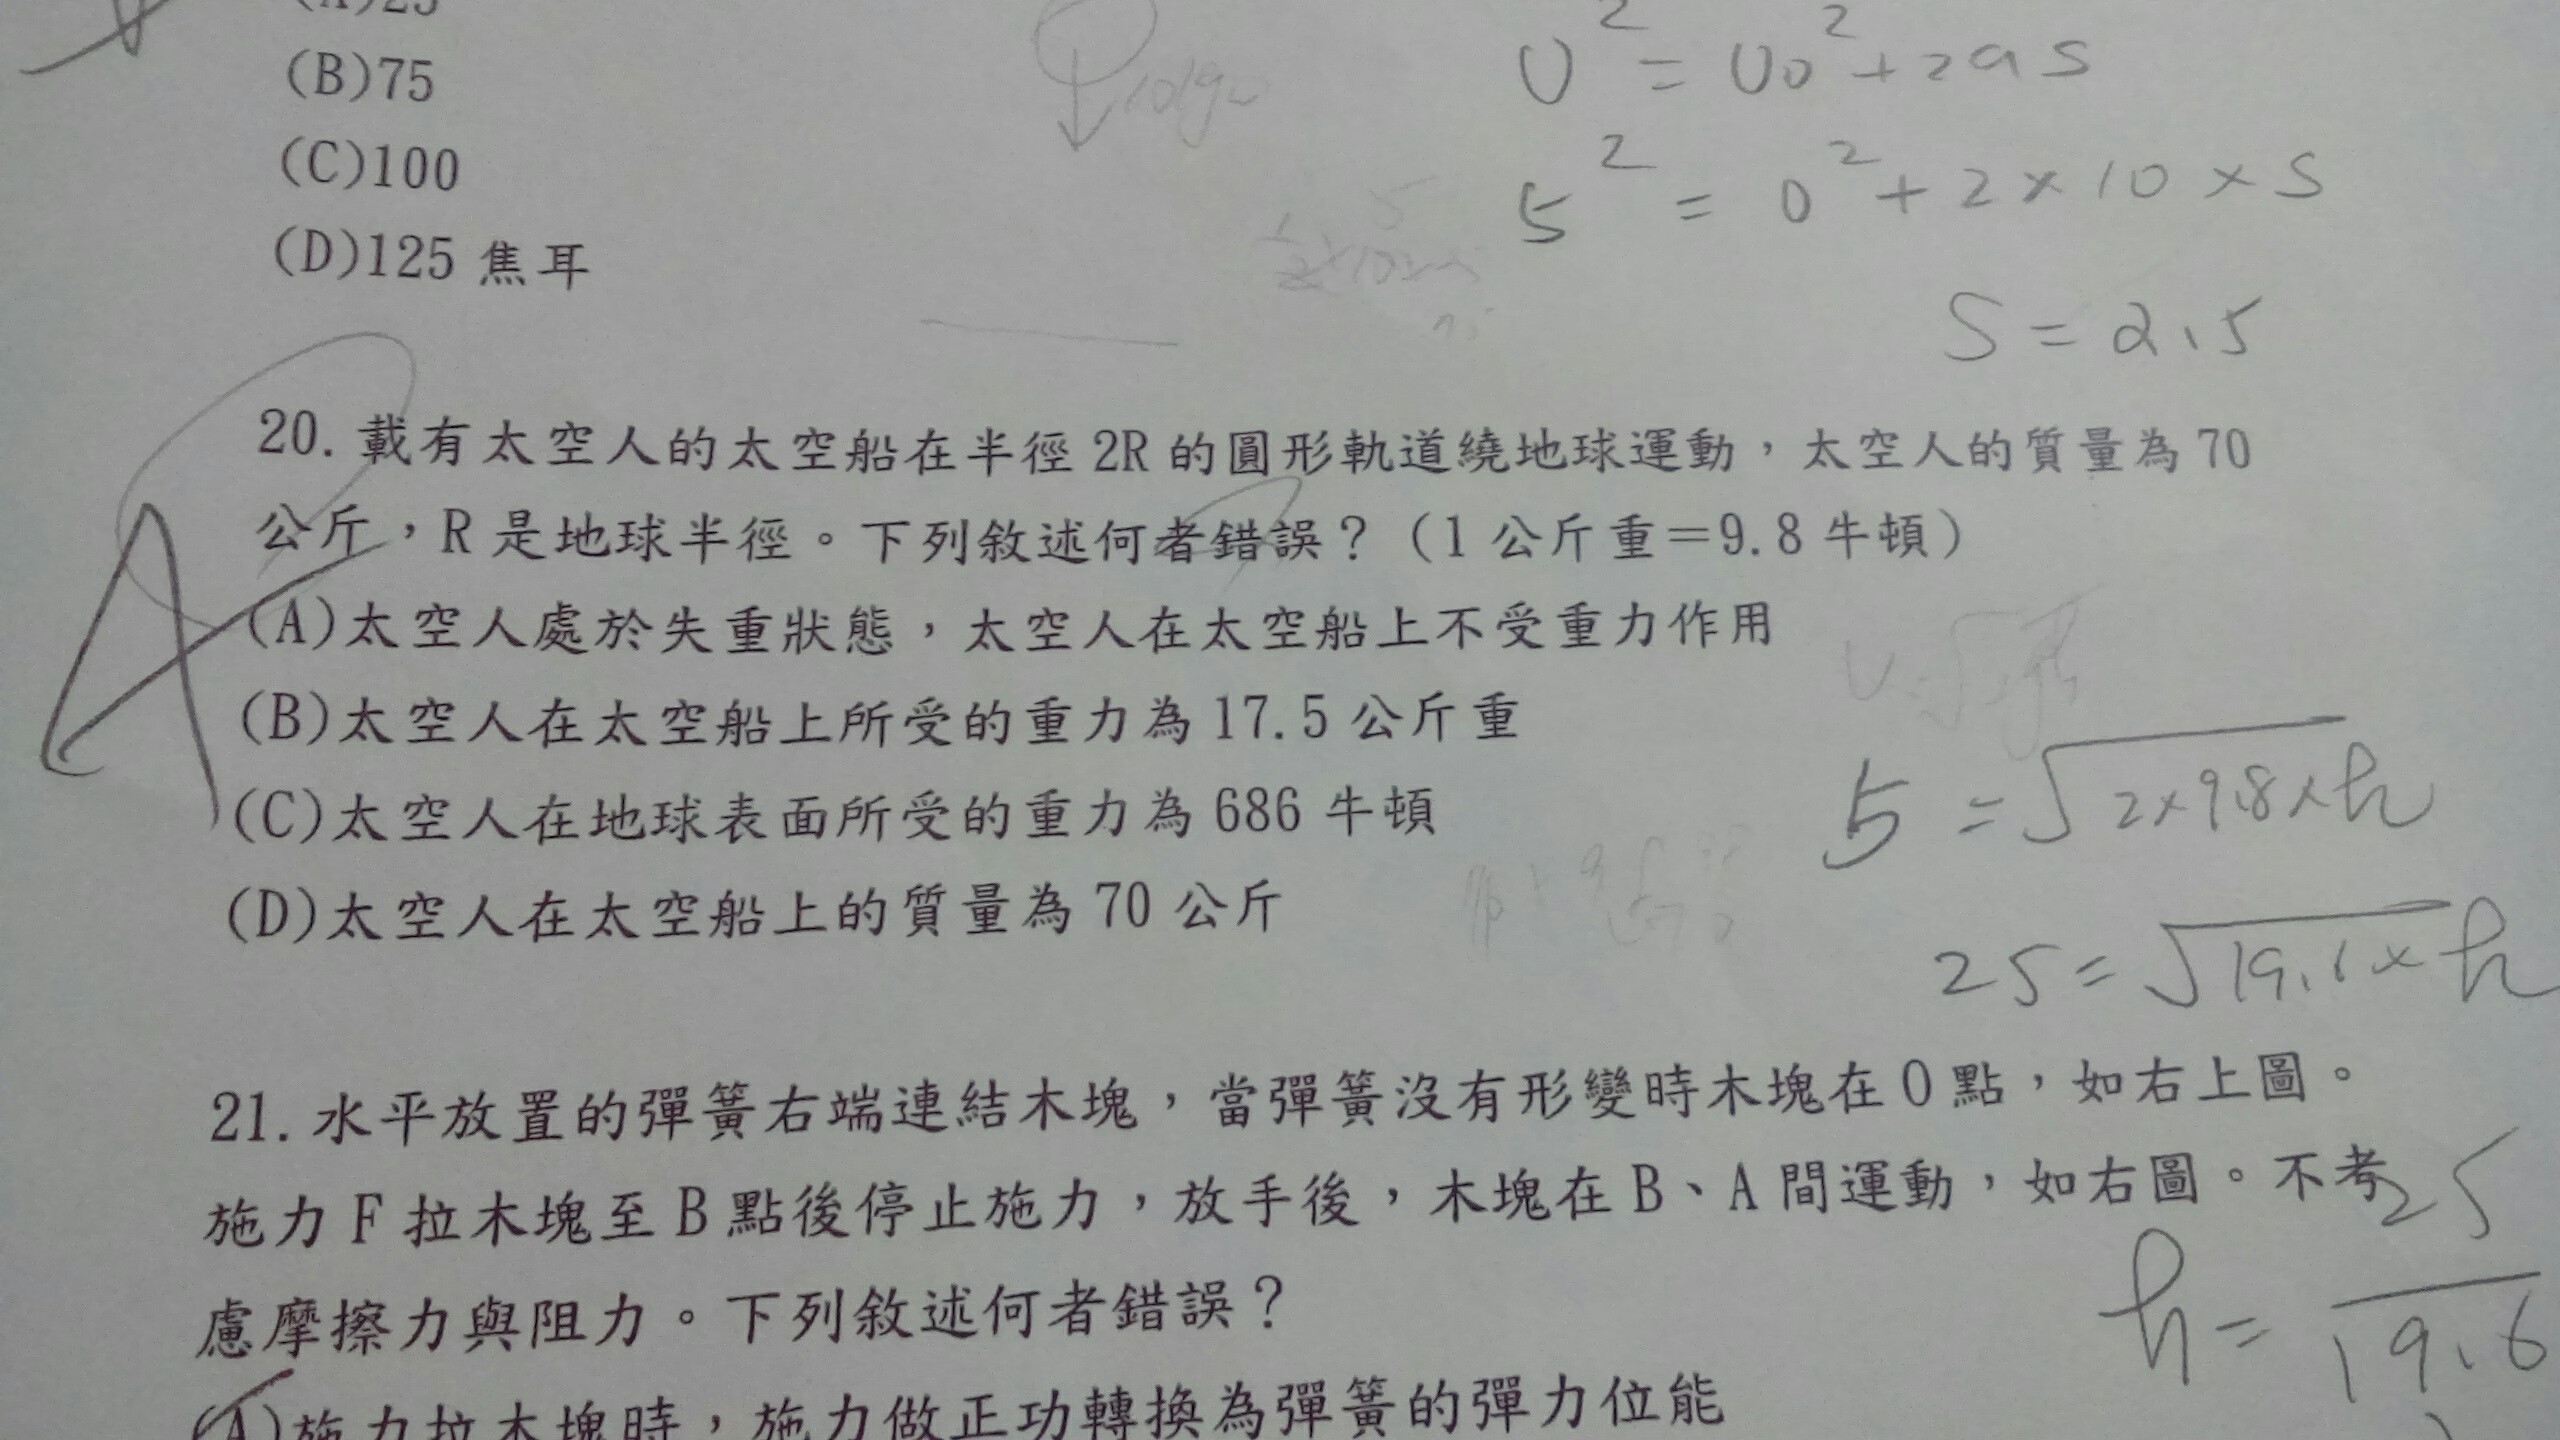 (A)25
(B)75
(C)100
(D)125 焦耳
υ² = υ0² + 2as
5² = 0² + 2 × 10 × S
S = 2.5
20. 載有太空人的太空船在半徑 2R 的圓形軌道繞地球運動，太空人的質量為 70
公斤，R 是地球半徑。下列敘述何者錯誤？（1 公斤重＝9.8 牛頓）
A
(A)太空人處於失重狀態，太空人在太空船上不受重力作用
(B)太空人在太空船上所受的重力為 17.5 公斤重
(C)太空人在地球表面所受的重力為 686 牛頓
(D)太空人在太空船上的質量為 70 公斤
5 = √2×9.8×h
25 = √19.6×h
21. 水平放置的彈簧右端連結木塊，當彈簧沒有形變時木塊在 O 點，如右上圖。
施力 F 拉木塊至 B 點後停止施力，放手後，木塊在 B、A 間運動，如右圖。不考
慮摩擦力與阻力。下列敘述何者錯誤？
h = 25/19.6
(A)施力拉木塊時，施力做正功轉換為彈簧的彈力位能